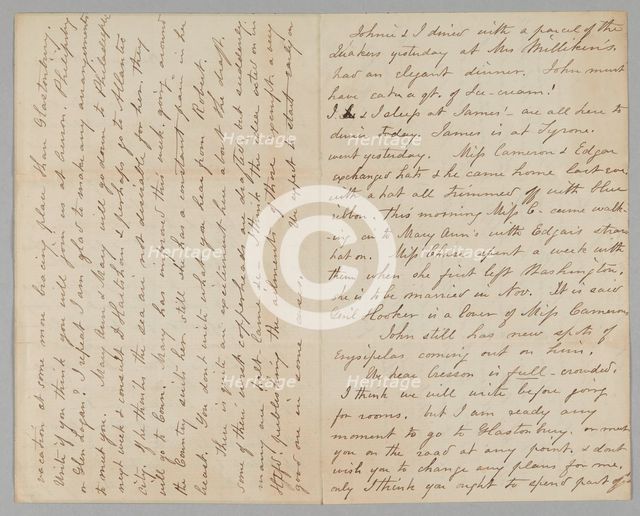 Johnie & I dined with a parcel of the
Quakers yesterday at Mrs Milliken's.
had an elegant dinner. John must
have eaten a qt. of Ice-cream!
I & I sleep at James' - are all here to
dinner today. James is at Tyrone.
went yesterday. Miss Cameron & Edgar
exchanged hats & she came home last eve.
with a hat all trimmed off with blue
ribbon. This morning Miss C- came walk-
ing in to Mary Ann's with Edgar's straw
hat on. Miss Chase spent a week with
them when she first left Washington.
she is to be married in Nov. It is said
Genl Hooker is a lover of Miss Cameron
John still has new spots of
Erysipelas coming out on him.
We hear Cresson is full - crowded.
I think we will write before going
for rooms. but I am ready any
moment to go to Glastonbury. or meet
you on the road at any point. & don't
wish you to change any plans for me,
only I think you ought to spend part of
vacation at some more bracing place than Glastonbury.
Write if you think you will join us at Cresson. Philipsburg
or Glen Logan? I repeat I am glad to make any arrangements
to meet you. Mary Ann & Mary will go down to Philadelphia
next week & consult D. & perhaps go to Atlantic
city. if he thinks the sea air not desirable for her. they
will go to Conn. Mary has improved this week. going around
the Country suits her. still she has a constant pain in her
breast. You don't write when you hear from Robert.
There is quite an excitement here about the draft.
some of their most opposers are drafted. but suddenly
many are lame &c. I think the
good one in some cases.
Heritage
Heritage
Heritage
Heritage
Heritage
Heritage